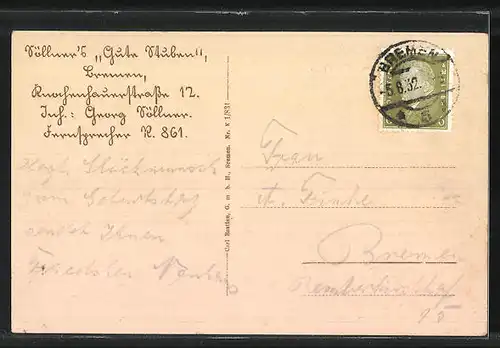 Söllner's „Gute Stuben",
Bremen,
Knochenhauerstraße 12.
Inh.: Georg Söllner.
Fernsprecher R. 861.
Herzl. Glückwunsch
zum Geburtstag
sendet Ihnen
Carl Bentien, G. m. b. H., Bremen. Nr. K 1/831
BREMEN
-5.8.32.
Frau
A. Finke
Bremen